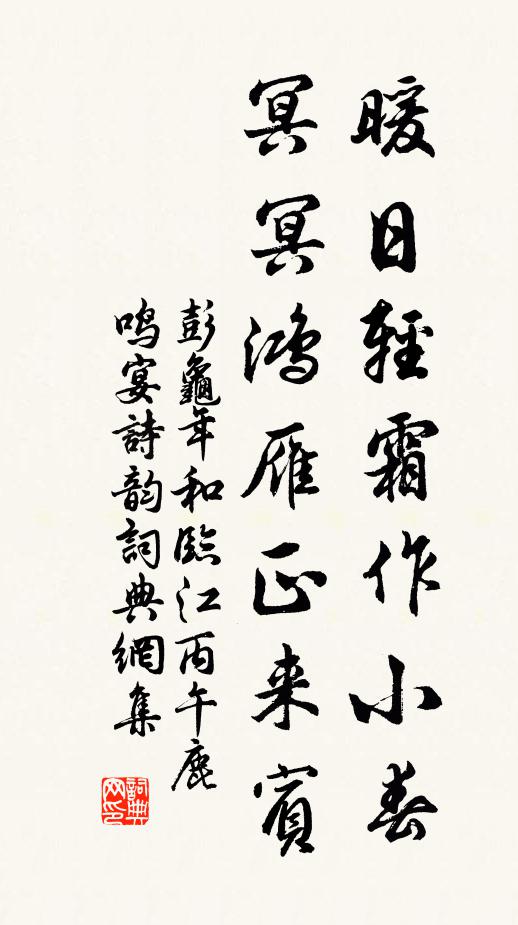 暖日輕霜作小春
冥冥鴻雁正来賓
彭龜年和臨江丙午鹿
鳴宴詩韵詞典網集
詞典
网印